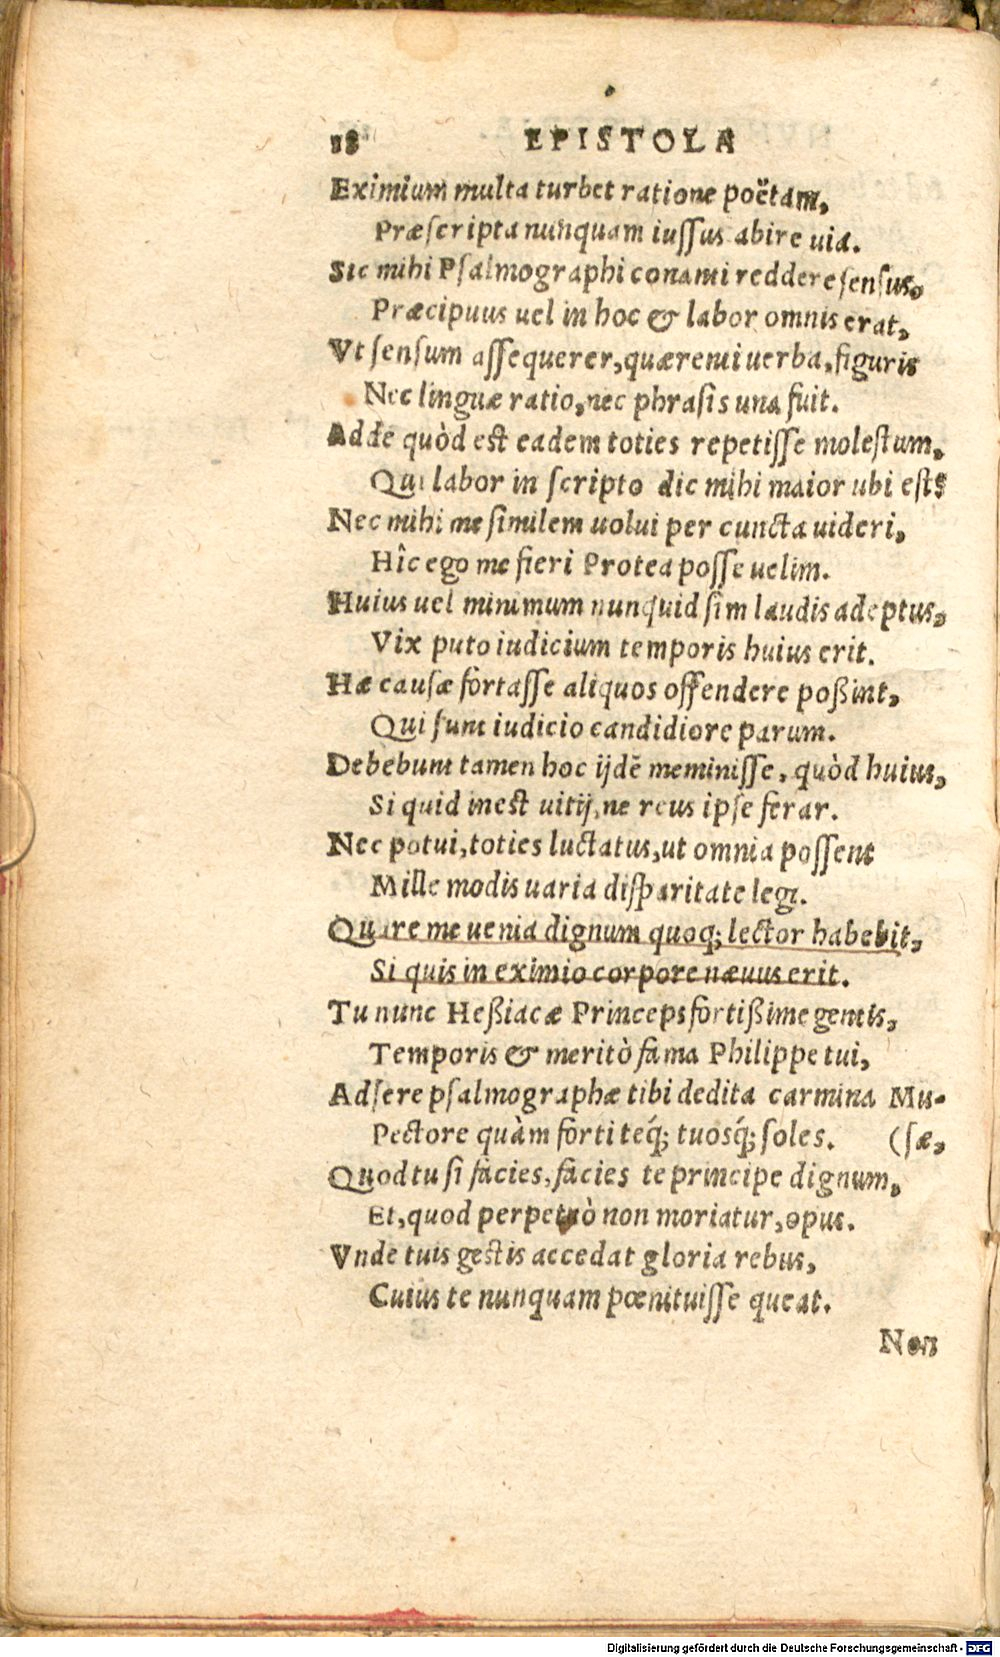 18 EPISTOLA
Eximium multa turbet ratione poëtam,
Præscripta nunquam iussus abire uia.
Sic mihi Psalmographi conanti reddere sensus,
Præcipuus uel in hoc & labor omnis erat,
Vt sensum assequerer, quæreremq́; uerba, figuris
Nec linguæ ratio, nec phrasis una fuit.
Adde quòd est eadem toties repetisse molestum,
Qui labor in scripto dic mihi maior ubi est?
Nec mihi me similem uolui per cuncta uideri,
Hîc ego me fieri Protea posse uelim.
Huius uel minimum nunquid sim laudis adeptus,
Vix puto iudicium temporis huius erit.
Hæ causæ fortasse aliquos offendere poßint,
Qui sunt iudicio candidiore parum.
Debebunt tamen hoc ijdẽ meminisse, quòd huius,
Si quid inest uitij, ne reus ipse ferar.
Nec potui, toties luctatus, ut omnia possent
Mille modis uaria disparitate legi.
Quare me uenia dignum quoq; lector habebit,
Si quis in eximio corpore næuus erit.
Tu nunc Heßiacæ Princeps fortißime gentis,
Temporis & meritò fama Philippe tui,
Adsere psalmographæ tibi dedita carmina Mu-
Pectore quàm forti teq́; tuosq́; soles. (sæ,
Quod tu si facies, facies te principe dignum,
Et, quod perpetuò non moriatur, opus.
Vnde tuis gestis accedat gloria rebus,
Cuius te nunquam pœnituisse queat.
Non
Digitalisierung gefördert durch die Deutsche Forschungsgemeinschaft - DFG